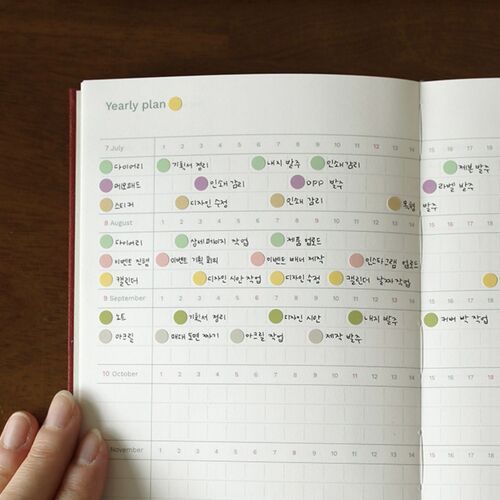 Yearly plan
7 July 1 2 3 4 5 6 7 8 9 10 11 12 13 14 15 16 17 18
다이어리 기획서 정리 내지 발주 인쇄감리 제본 발주
메모패드 인쇄 감리 OPP 발주 라벨 발주
스티커 디자인 수정 인쇄 감리 발주
8 August 1 2 3 4 5 6 7 8 9 10 11 12 13 14 15 16 17 18
다이어리 상세페이지 작업 제품 업로드
이벤트 진행 이벤트 기획 회의 이벤트 배너 제작 인스타그램 업로드
캘린더 디자인 시안 작업 디자인 수정 캘린더 날짜 작업
9 September 1 2 3 4 5 6 7 8 9 10 11 12 13 14 15 16 17 18
노트 기획서 정리 디자인 시안 내지 발주 커버 박 작업
아크릴 매대 도면 짜기 아크릴 작업 제작 발주
10 October 1 2 3 4 5 6 7 8 9 10 11 12 13 14 15 16 17 18
November 1 2 3 4 5 6 7 8 9 10 11 12 13 14 15 16 17 18